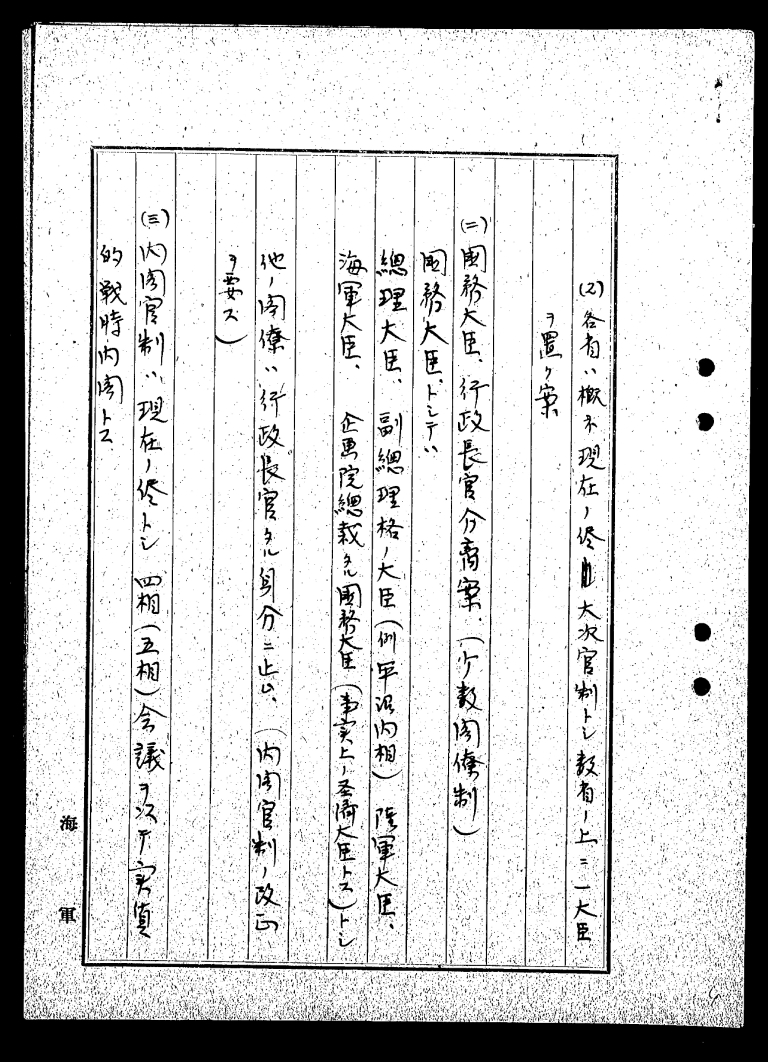 (2)各省ハ概ネ現在ノ侭大次官制トシ数省ノ上ニ一大臣
ヲ置ク案
(二)國務大臣、行政長官分离案、(少数閣僚制)
國務大臣トシテハ
總理大臣、副總理格ノ大臣(例平沼内相)陸軍大臣、
海軍大臣、企画院總裁タル國務大臣(事実上ノ圣済大臣トス)トシ
他ノ閣僚ハ行政長官タル身分ニ止ム、(内閣官制ノ改正
ヲ要ス)
(三)内閣官制ハ現在ノ侭トシ四相(五相)会議ヲ以テ実質
的戦時内閣トス
海軍